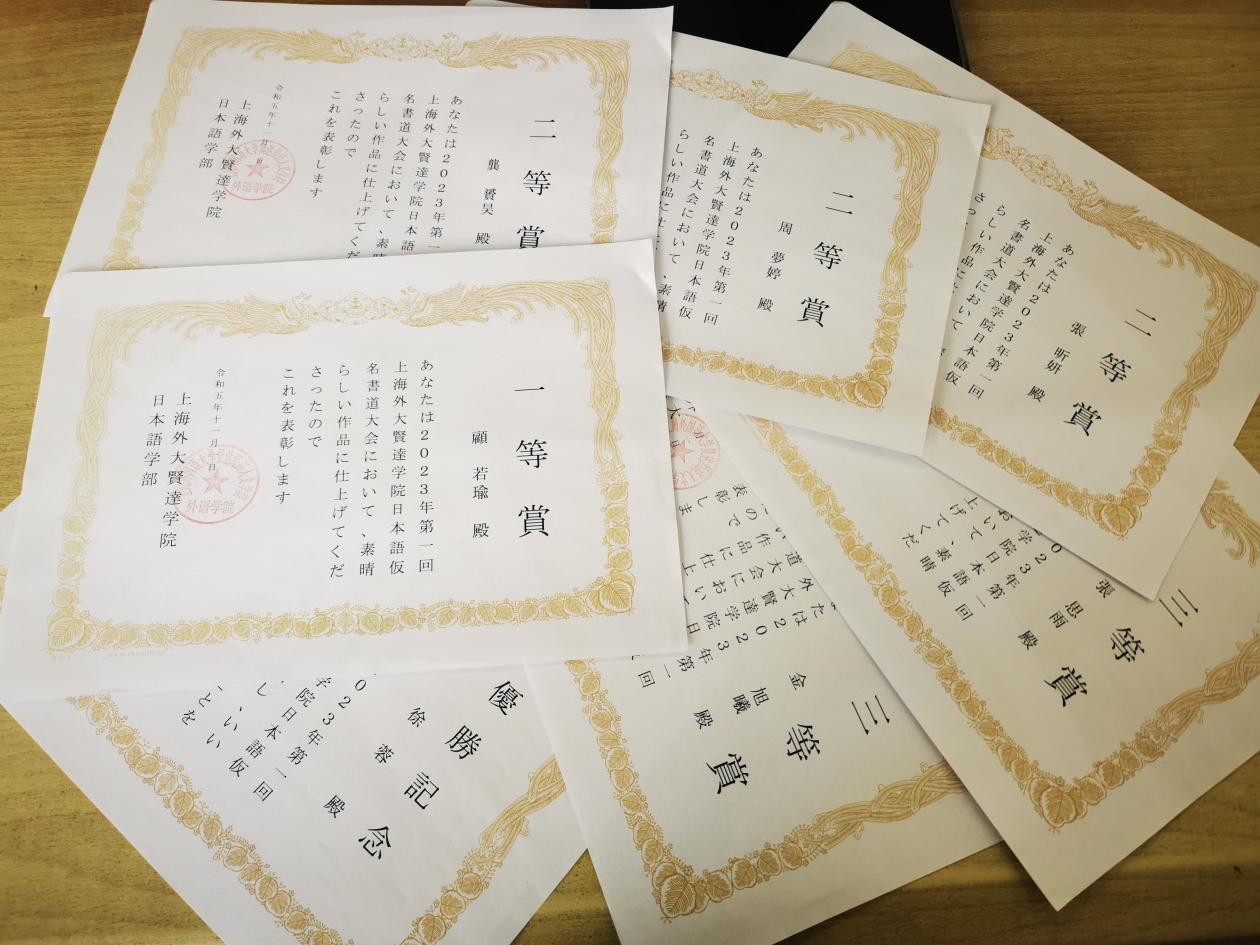 二等賞
龔 贇昊 殿
あなたは２０２３年第一
上海外大賢達学院日本語
名書道大会において、素晴
らしい作品に仕上げてくだ
さったので
これを表彰します
令和五年十一月 日
上海外大賢達学院
日本語学部
外语学院
二等賞
周 夢婷 殿
あなたは２０２３年第一回
上海外大賢達学院日本語仮
名書道大会において、素晴
らしい作品に仕
二等賞
張 昕妍 殿
あなたは２０２３年第一回
上海外大賢達学院日本語仮
名書道大会において
らしい作品に
さった
一等賞
顧 若瑜 殿
あなたは２０２３年第一回
上海外大賢達学院日本語仮
名書道大会において、素晴
らしい作品に仕上げてくだ
さったので
これを表彰します
令和五年十一月 日
上海外大賢達学院
日本語学部
外语学院
三等賞
張 思雨 殿
２３年第一回
学院日本語仮
おいて、素晴
上げてくだ
三等賞
金 旭曦 殿
たは２０２３年第一回
外大賢達学院日
道大会におい
い作品に仕上
ので
表彰しま
優勝記念
徐 蓉 殿
０２３年第一回
学院日本語仮
し、いい
ことを